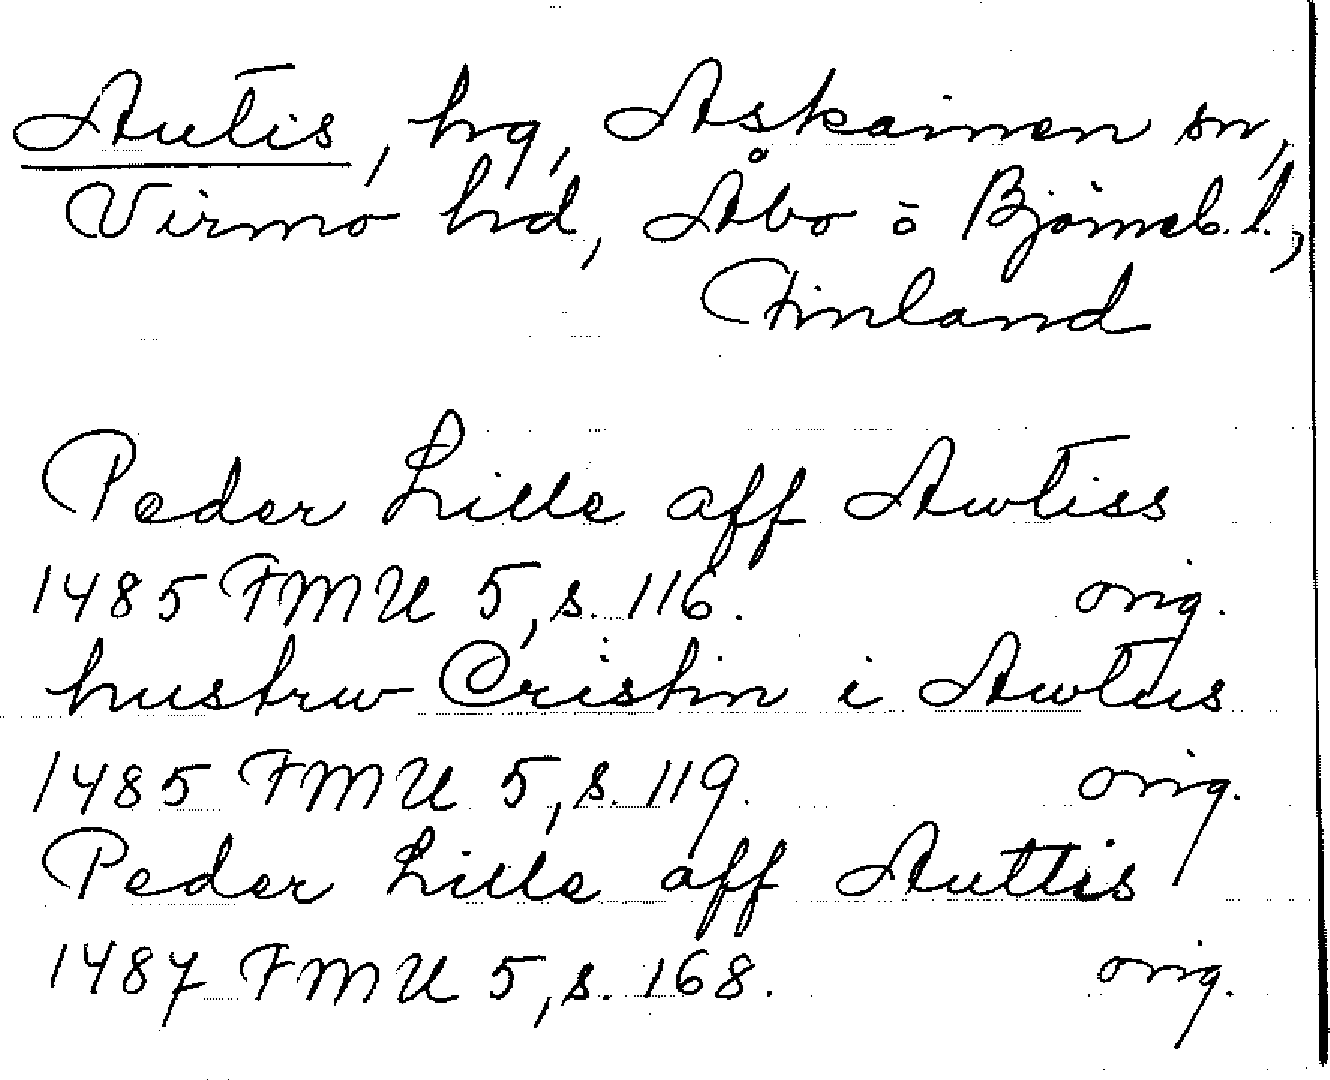 Autis, hg, Askainen sn,
Virmo hd, Åbo o Björneb. l.,
Finland
Peder Lille aff Awtiss
1485 FMU 5, s. 116. orig.
hustrw Cristin i Awtus
1485 FMU 5, s. 119. orig.
Peder Lille aff Auttis
1487 FMU 5, s. 168. orig.